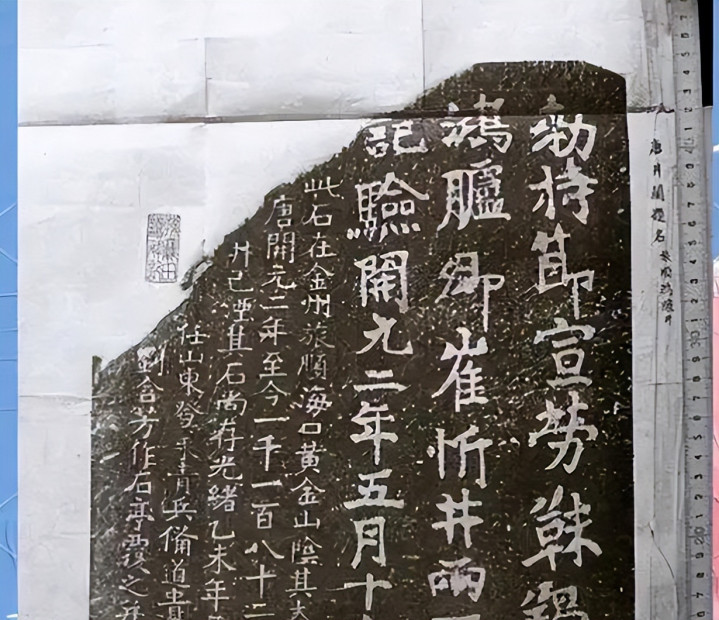 唐井闌題名 旅順鴻臚井
勅持節宣勞靺
鴻臚卿崔忻井兩
記驗開元二年五月十
此石在金州旅順海口黃金山陰其大
唐開元二年至今一千一百八十二
井已湮其石尚存光緒乙未年
任山東登萊青兵備道貴
劉含芳作石亭覆之并